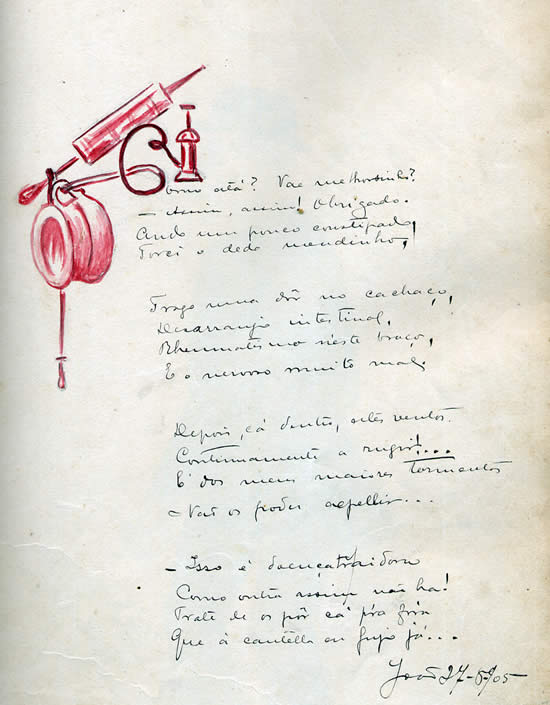 Como está? Vae melhorsinho?
— Assim, assim! Obrigado.
Ando um pouco constipado,
Torci o dedo mendinho,
Trago uma dôr no cachaço,
Desarranjo intestinal,
Rheumatismo n'este braço,
E o nervoso muito mal.
Depois, cá dentro, estes ventos
Continuamente a rugir!...
É dos meus maiores tormentos
— Não os poder expellir...
— Isso é doença traidora
Como outra assim não ha!
Trate de os pôr cá p'ra fóra
Que á cautella eu fujo já...
João 27-5-905